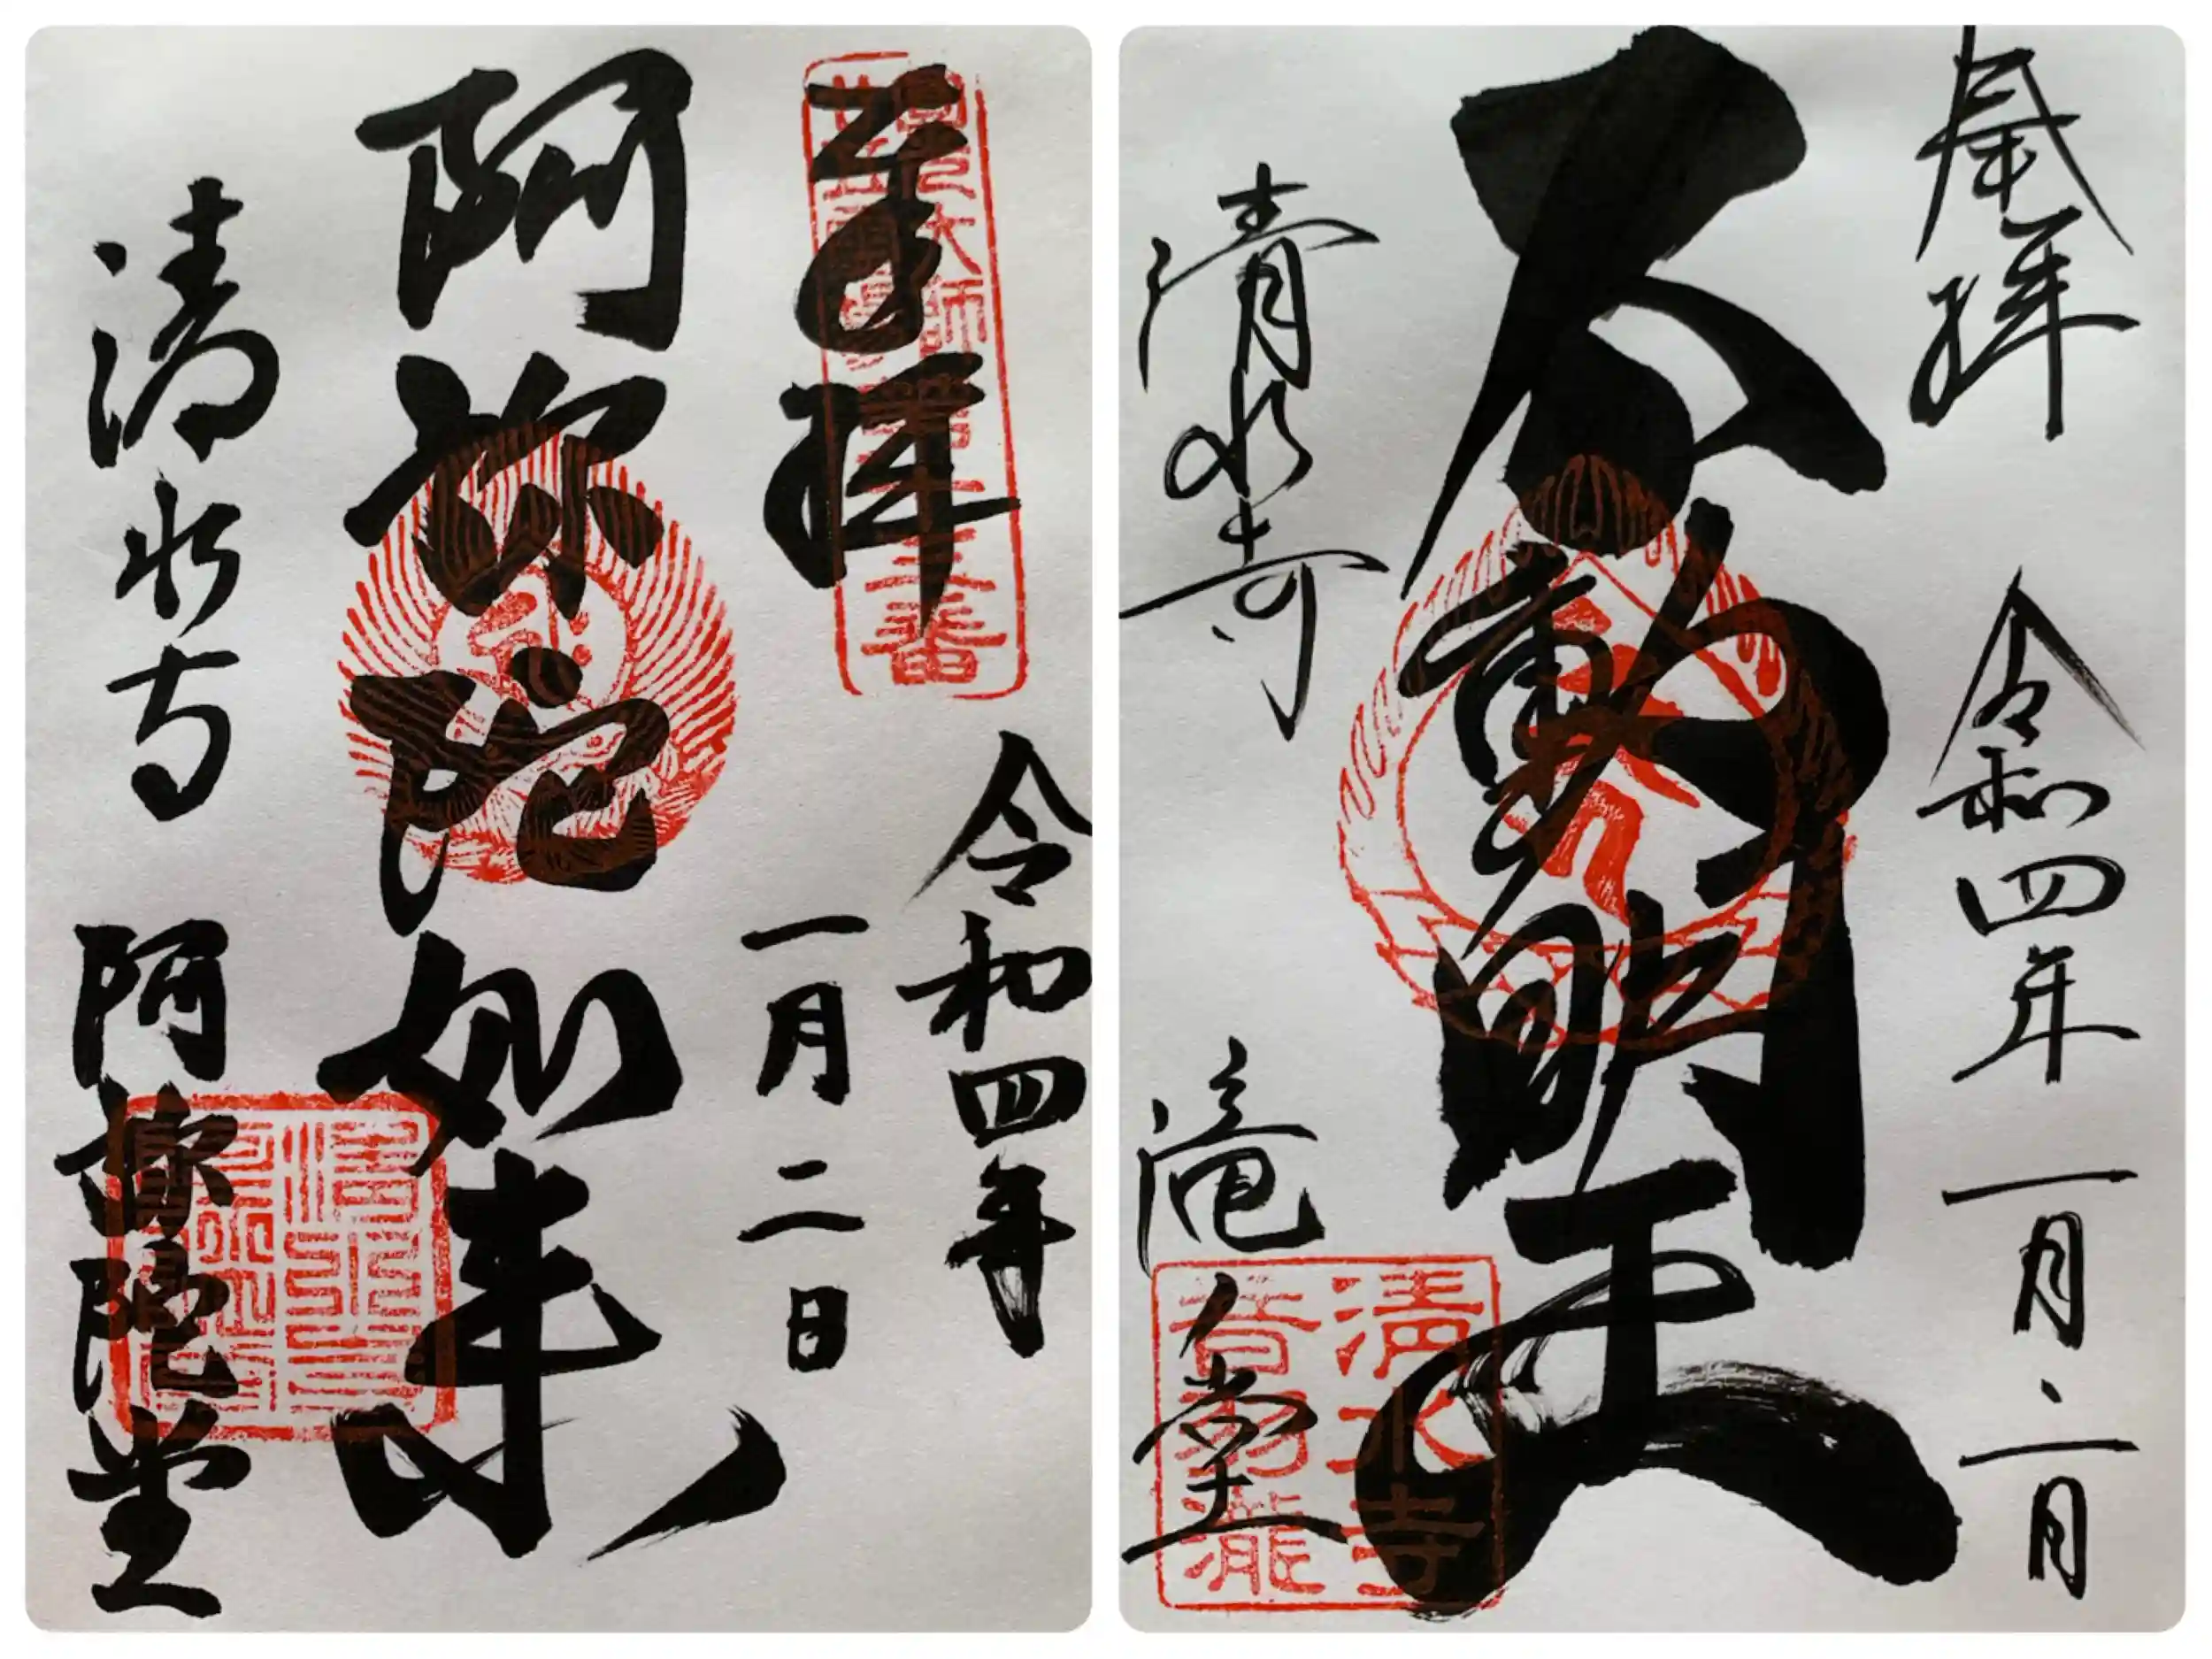 奉拝
令和四年
一月二日
阿弥陀如来
清水寺
阿弥陀堂
奉拝
令和四年一月二日
不動明王
清水寺
滝之堂
清水寺
音羽瀧